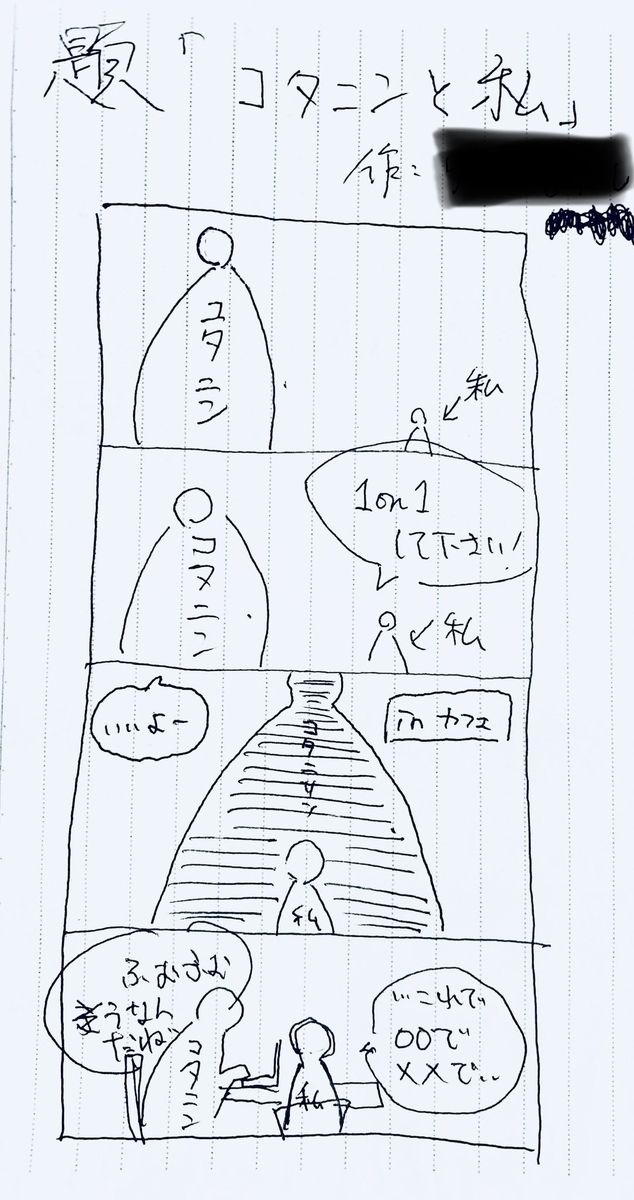 題「コタニンと私」
作:
コタニン
私
1on1
して下さい!
コタニン
私
いいよー
in カフェ
コタニン
私
ふむふむ
そうなん
だね
コタニン
私
…これで
〇〇で
××で…